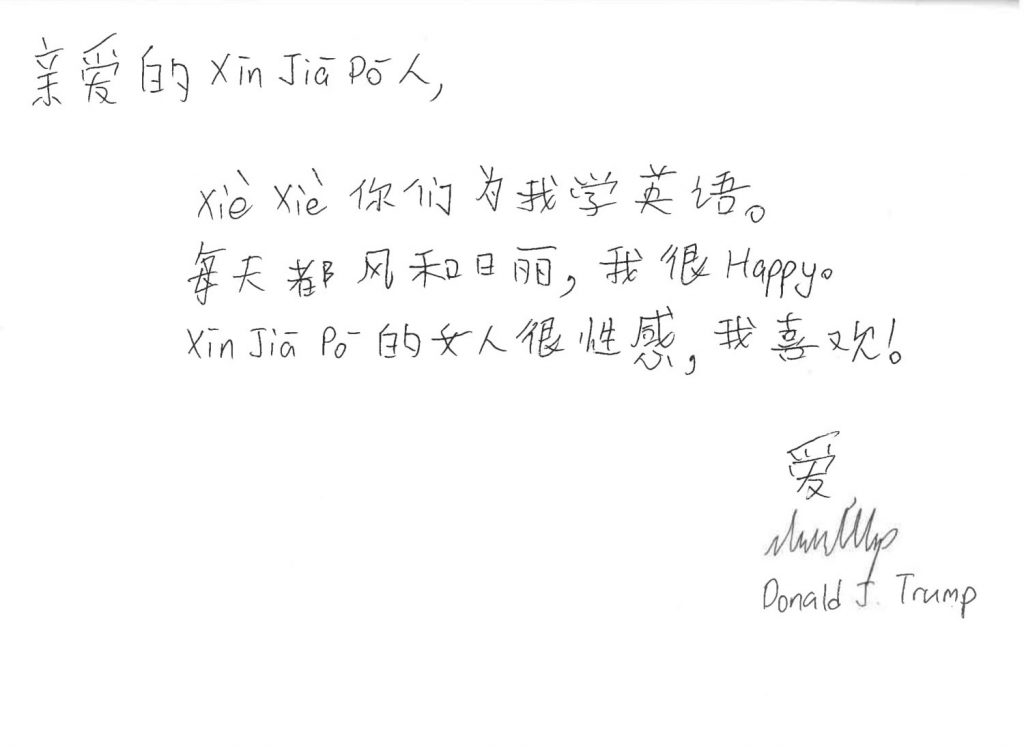 亲爱的 Xīn Jiā Pō 人,
Xiè Xiè 你们为我学英语。
每天都风和日丽，我很 Happy。
Xīn Jiā Pō 的女人很性感，我喜欢！
爱
Donald J. Trump